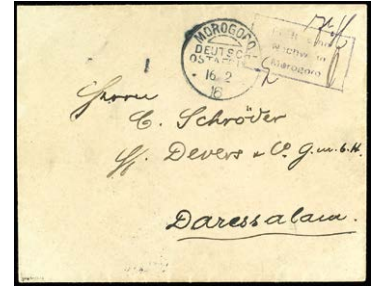 MOROGORO
DEUTSCH-
OSTAFRIKA
16 2
16
Morogoro
Herrn
C. Schröder
Devers & Co G.m.b.H.
Daressalam.